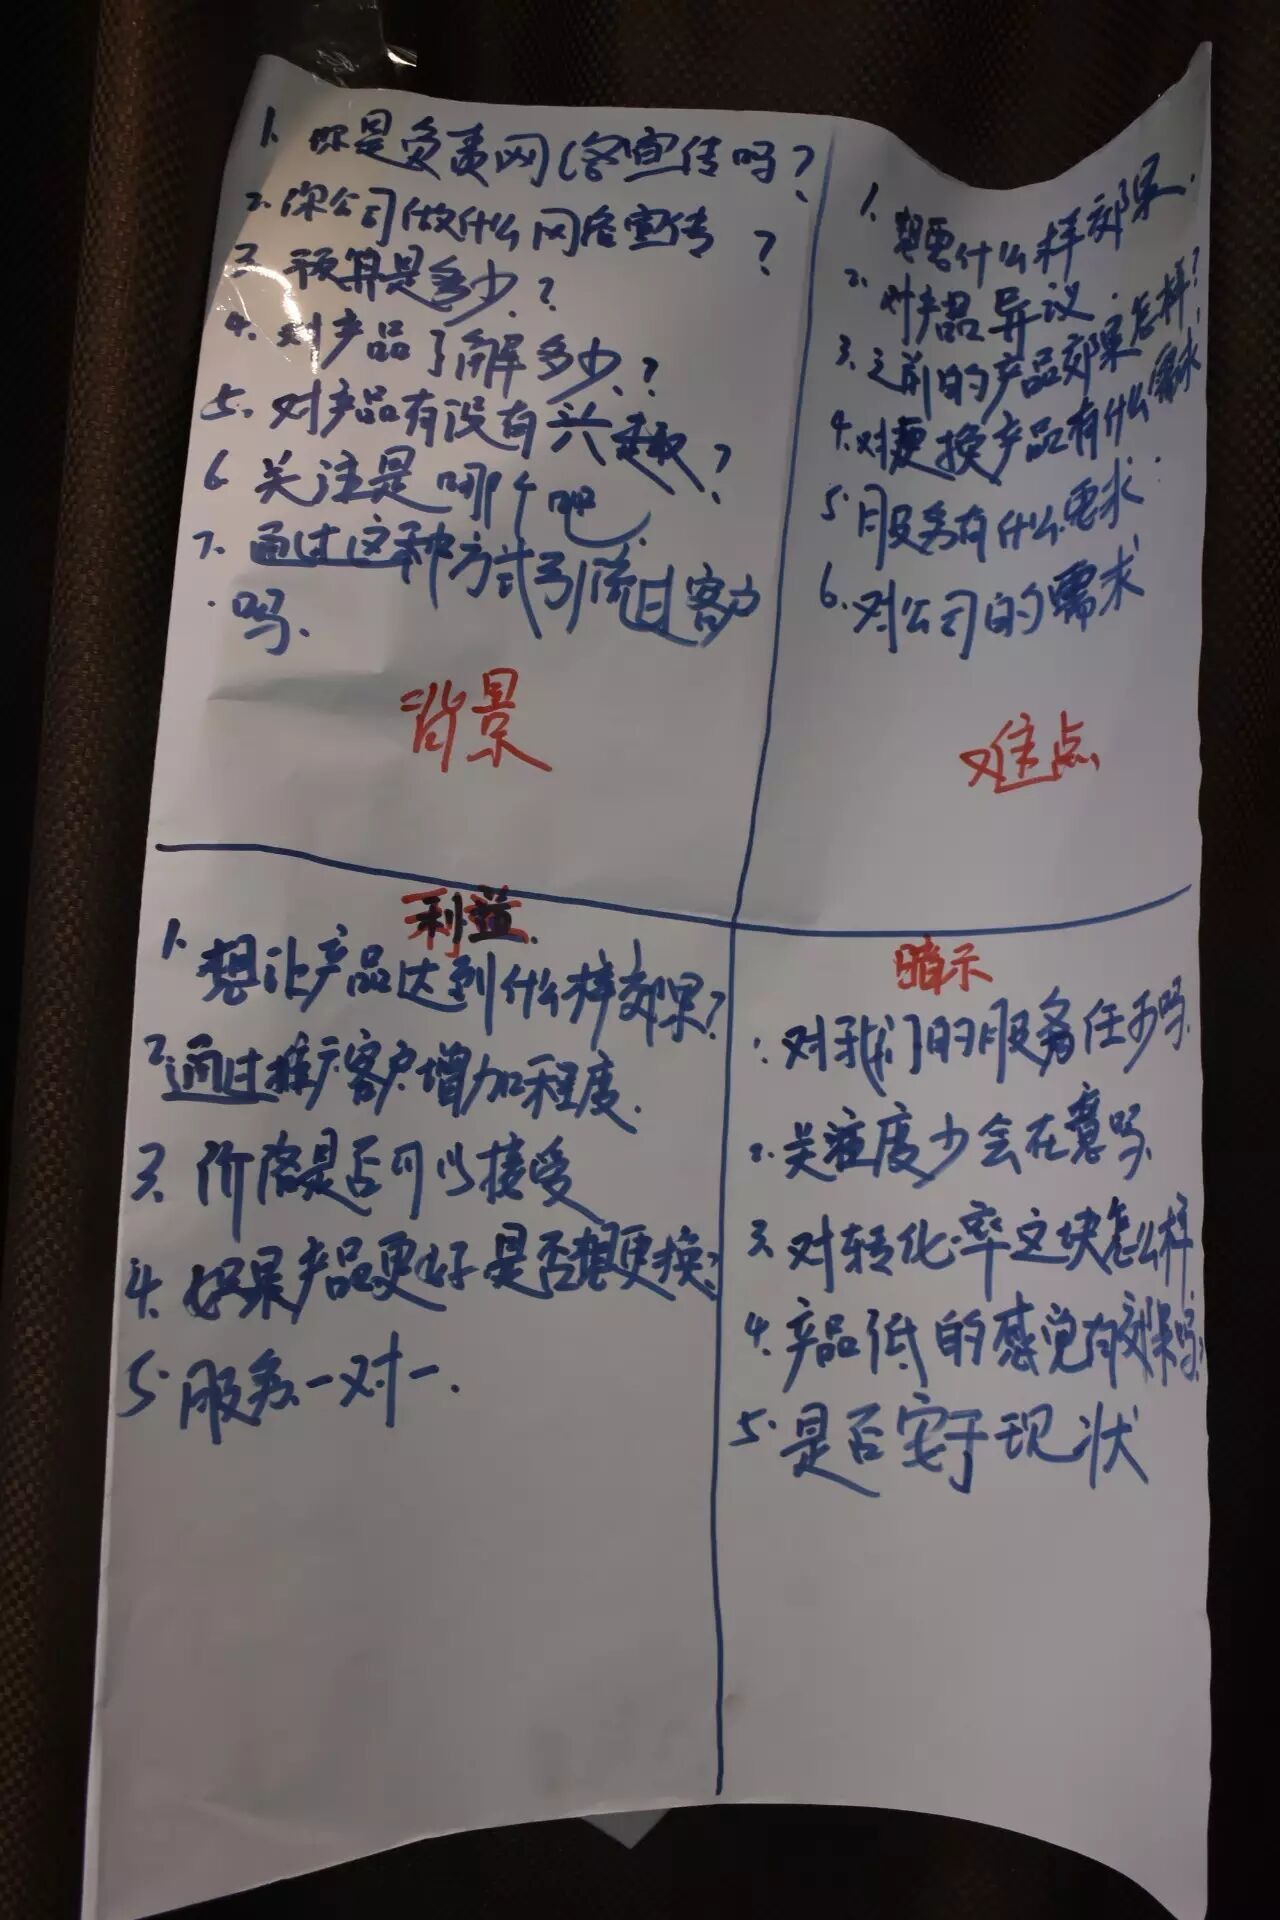 1. 你是负责网络宣传吗?
2. 你公司做什么网络宣传?
3. 预算是多少?
4. 对产品了解多少?
5. 对产品有没有兴趣?
6 关注是哪个吧
7. 通过这种方式引流过客户
吗.
背景
1. 想要什么样效果.
2. 对产品异议.
3. 之前的产品效果怎样?
4. 对更换产品有什么需求
5. 服务有什么要求
6. 对公司的需求
难点
利益
1. 想让产品达到什么样效果?
2. 通过推广客户增加程度.
3. 价格是否可以接受
4. 如果产品更好是否想更换?
5. 服务一对一.
暗示
1. 对我们的服务任可吗.
2. 关注度少会在意吗.
3. 对转化率这块怎么样
4. 产品低的感觉有效果吗?
5. 是否安于现状